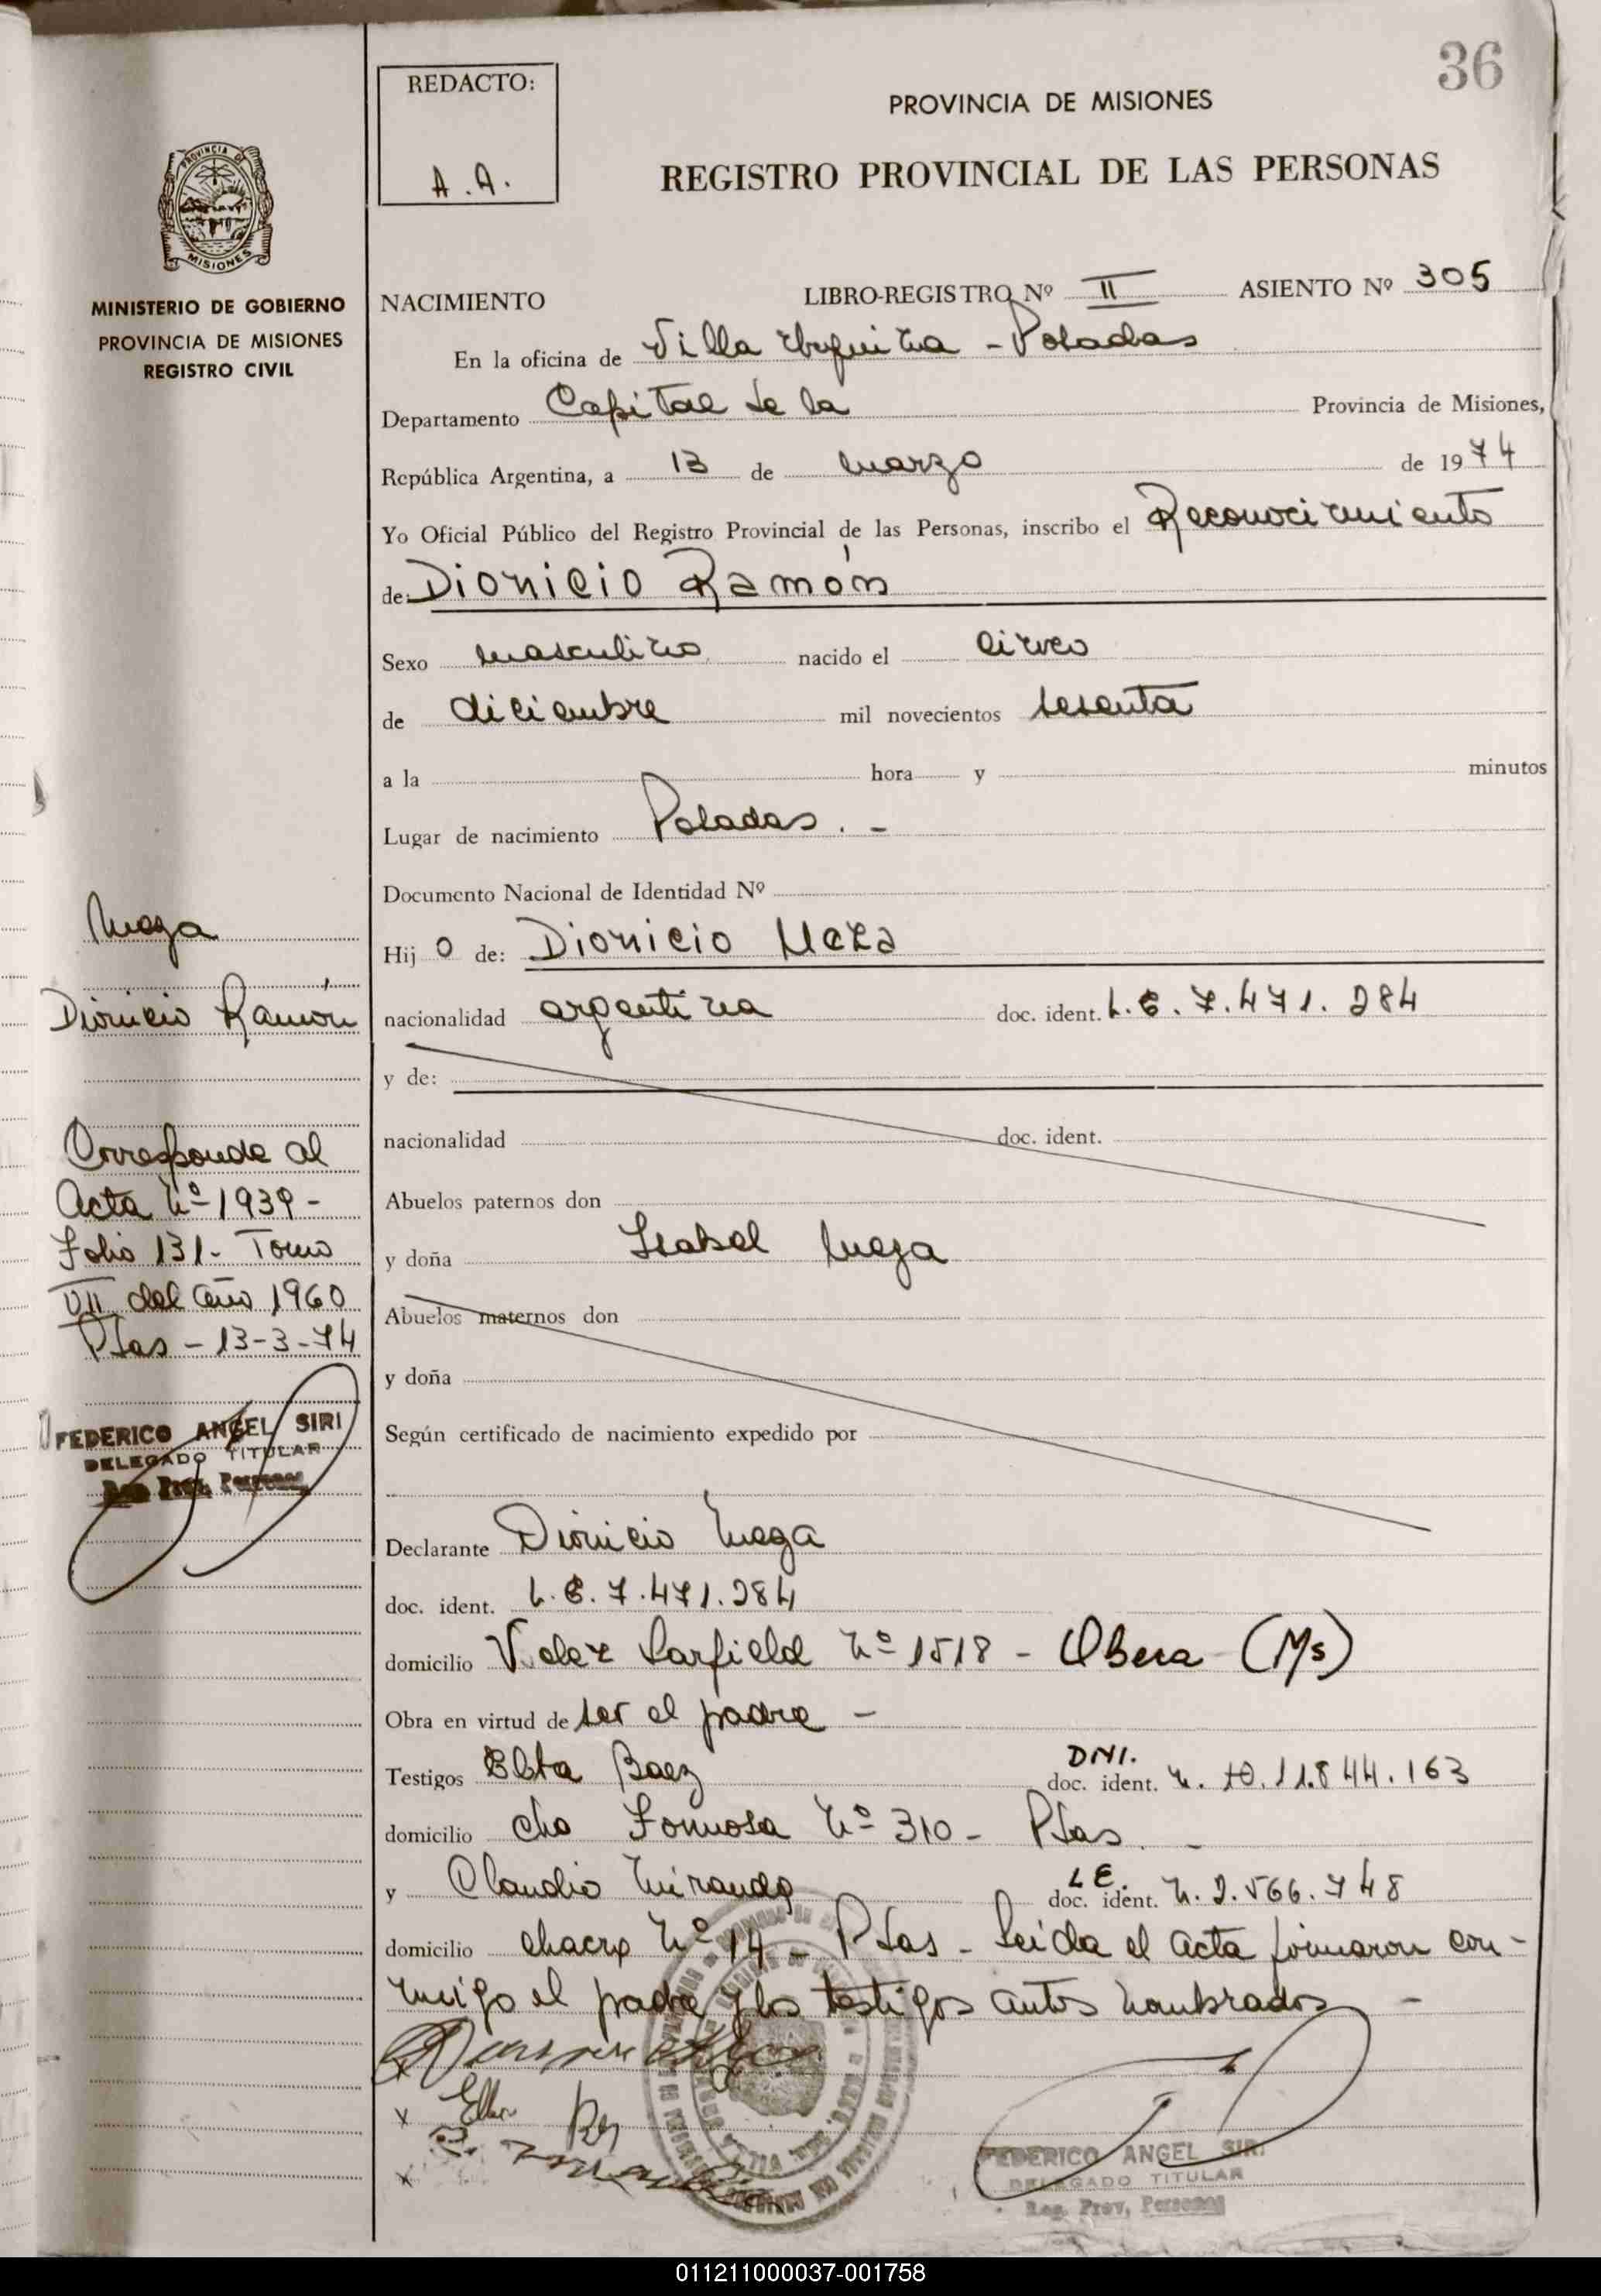 36
REDACTO:
A.A.
PROVINCIA DE MISIONES
REGISTRO PROVINCIAL DE LAS PERSONAS
PROVINCIA DE
MISIONES
MINISTERIO DE GOBIERNO
PROVINCIA DE MISIONES
REGISTRO CIVIL
NACIMIENTO LIBRO-REGISTRO Nº II ASIENTO Nº 305
En la oficina de Villa Urquiza - Posadas
Departamento Capital de la Provincia de Misiones,
República Argentina, a 13 de marzo de 1974
Yo Oficial Público del Registro Provincial de las Personas, inscribo el Reconocimiento
de: Dionicio Ramón
Sexo masculino nacido el cinco
de diciembre mil novecientos sesenta
a la hora y minutos
Lugar de nacimiento Posadas. -
Documento Nacional de Identidad Nº
Hijo de: Dionicio Meza
nacionalidad argentina doc. ident. L.E. 7.471.284
y de:
nacionalidad doc. ident.
Abuelos paternos don
y doña Isabel Meza
Abuelos maternos don
y doña
Según certificado de nacimiento expedido por
Declarante Dionicio Meza
doc. ident. L.E. 7.471.284
domicilio Velez Sarfield Nº 1518 - Obera (Ms)
Obra en virtud de ser el padre -
Testigos Elba Baez DNI. doc. ident. N. 10.11.844.163
domicilio Formosa Nº 310 - Psas. -
y Claudio Miranda L E. doc. ident. N. 2.566.748
domicilio chacra Nº 14 - Psas - Leida el acta firmaron con-
migo el padre y los testigos antes nombrados -
x
x
FEDERICO ANGEL SIRI
DELEGADO TITULAR
Reg. Prov. Personas
Meza
Dionicio Ramón
Corresponde al
Acta Nº 1939 -
Folio 131 - Tomo
VII del año 1960
Psas - 13-3-74
FEDERICO ANGEL SIRI
DELEGADO TITULAR
Reg. Prov. Personas
011211000037-001758